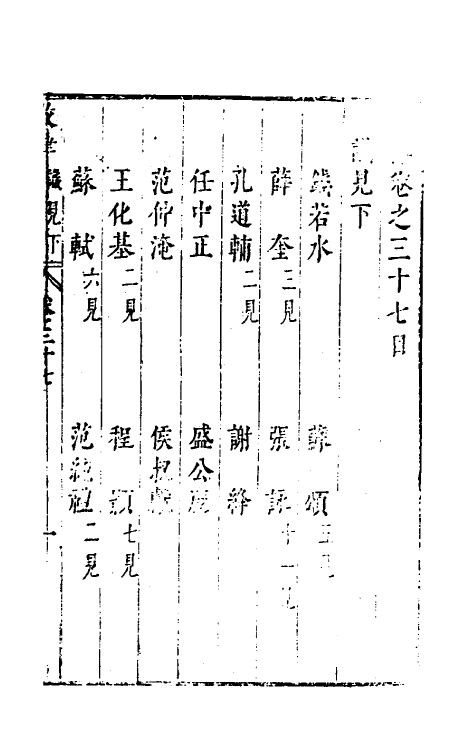 卷之三十七目
見下
錢若水　蘇頌五見
薛奎三見　張詠十一見
孔道輔二見　謝絳
任中正　盛公度
范仲淹　侯叔獻
王化基二見　程顥七見
蘇軾六見　范純禮二見
牧津　見下　卷三十七　一